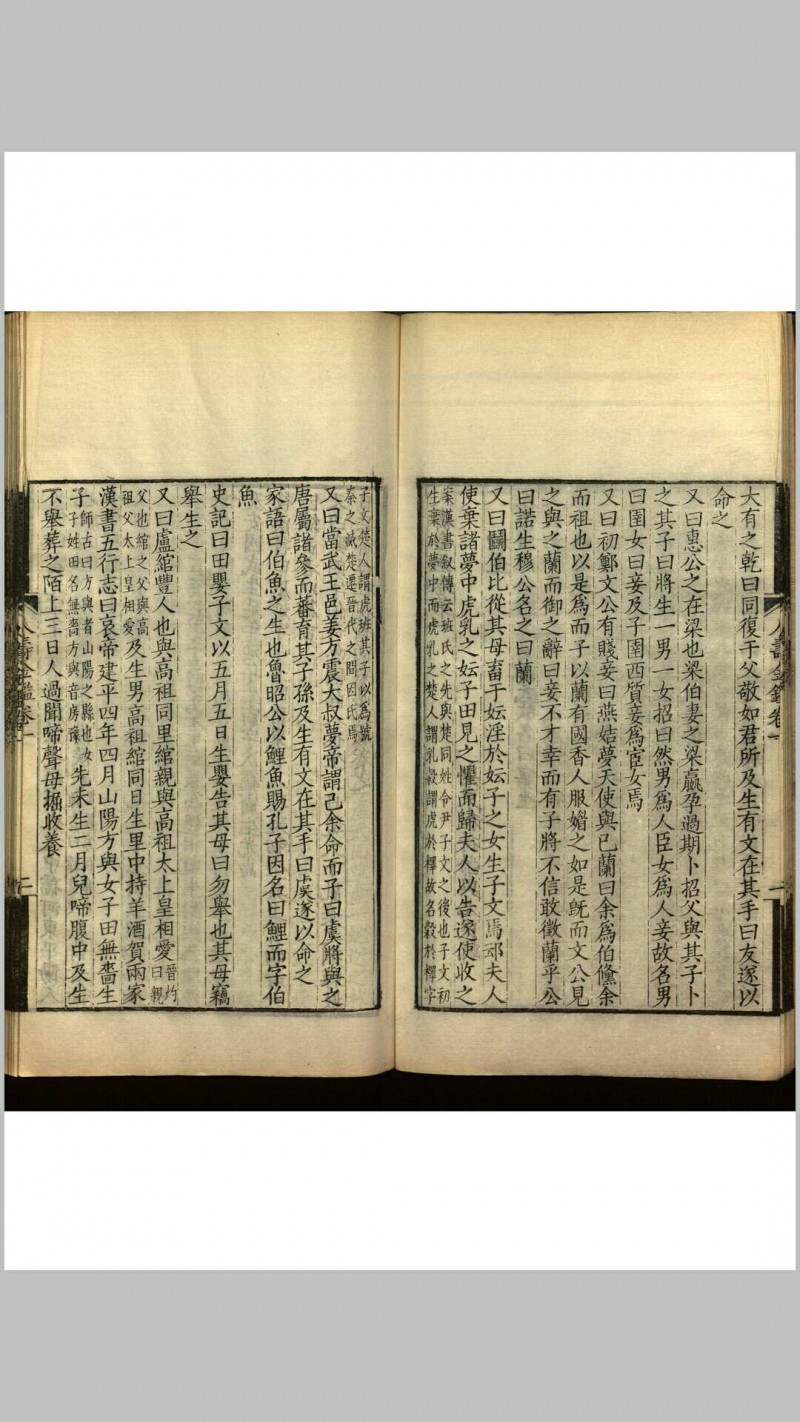 大有之乾曰同復于父敬如君所及生有文在其手曰友遂以
命之
又曰惠公之在梁也梁伯妻之梁嬴孕過期卜招父與其子卜
之其子曰將生一男一女招曰然男爲人臣女爲人妾故名男
曰圉女曰妾及子圉西質妾爲宦女焉
又曰初鄭文公有賤妾曰燕姞夢天使與已蘭曰余爲伯儵余
而祖也以是爲而子以蘭有國香人服媚之如是旣而文公見
之與之蘭而御之辭曰妾不才幸而有子將不信敢徴蘭乎公
曰諾生穆公名之曰蘭
又曰鬭伯比從其母畜于妘淫於妘子之女生子文焉䢵夫人
使棄諸夢中虎乳之妘子田見之懼而歸夫人以告遂使收之
案漢書叙傳云班氏之先與楚同姓令尹子文之後也子文初
生棄於夢中而虎乳之楚人謂乳穀謂虎於檡故名穀於檡字
人壽金鑑卷一
一
子文楚人謂虎班其子以爲號
秦之滅楚遷晉代之間因氏焉
又曰當武王邑姜方震大叔夢帝謂已余命而子曰虞將與之
唐屬諸參而蕃育其子孫及生有文在其手曰虞遂以命之
家語曰伯魚之生也魯昭公以鯉魚賜孔子因名曰鯉而字伯
魚
史記曰田嬰子文以五月五日生嬰告其母曰勿舉也其母竊
舉生之
又曰盧綰豐人也與高祖同里綰親與高祖太上皇相愛晉灼曰親
父也綰之父與高祖父太上皇相愛及生男高祖綰同日生里中持羊酒賀兩家
漢書五行志曰哀帝建平四年四月山陽方與女子田無嗇生
子師古曰方與者山陽之縣也女子姓田名無嗇方與音房豫先未生二月兒啼腹中及生
不舉葬之陌上三日人過聞啼聲母掘收養
人壽金鑑卷一
二